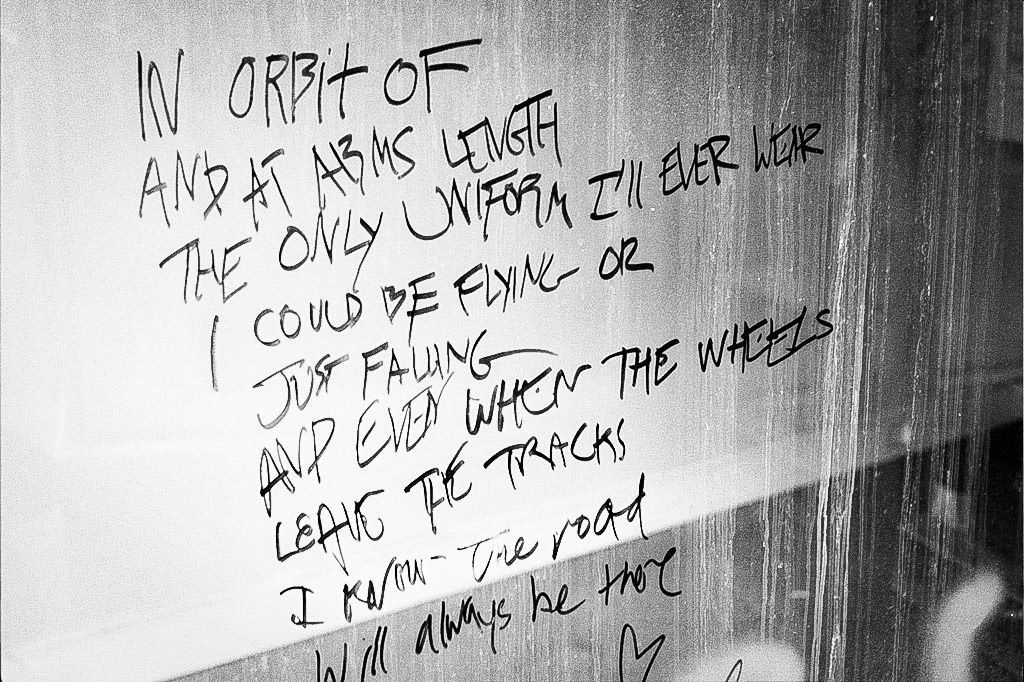 IN ORBIT OF
AND AT ARMS LENGTH
THE ONLY UNIFORM I'll EVER WEAR
I COULD BE FLYING OR
JUST FALLING
AND EVEN WHEN THE WHEELS
LEAVE THE TRACKS
I know the road
Will always be there